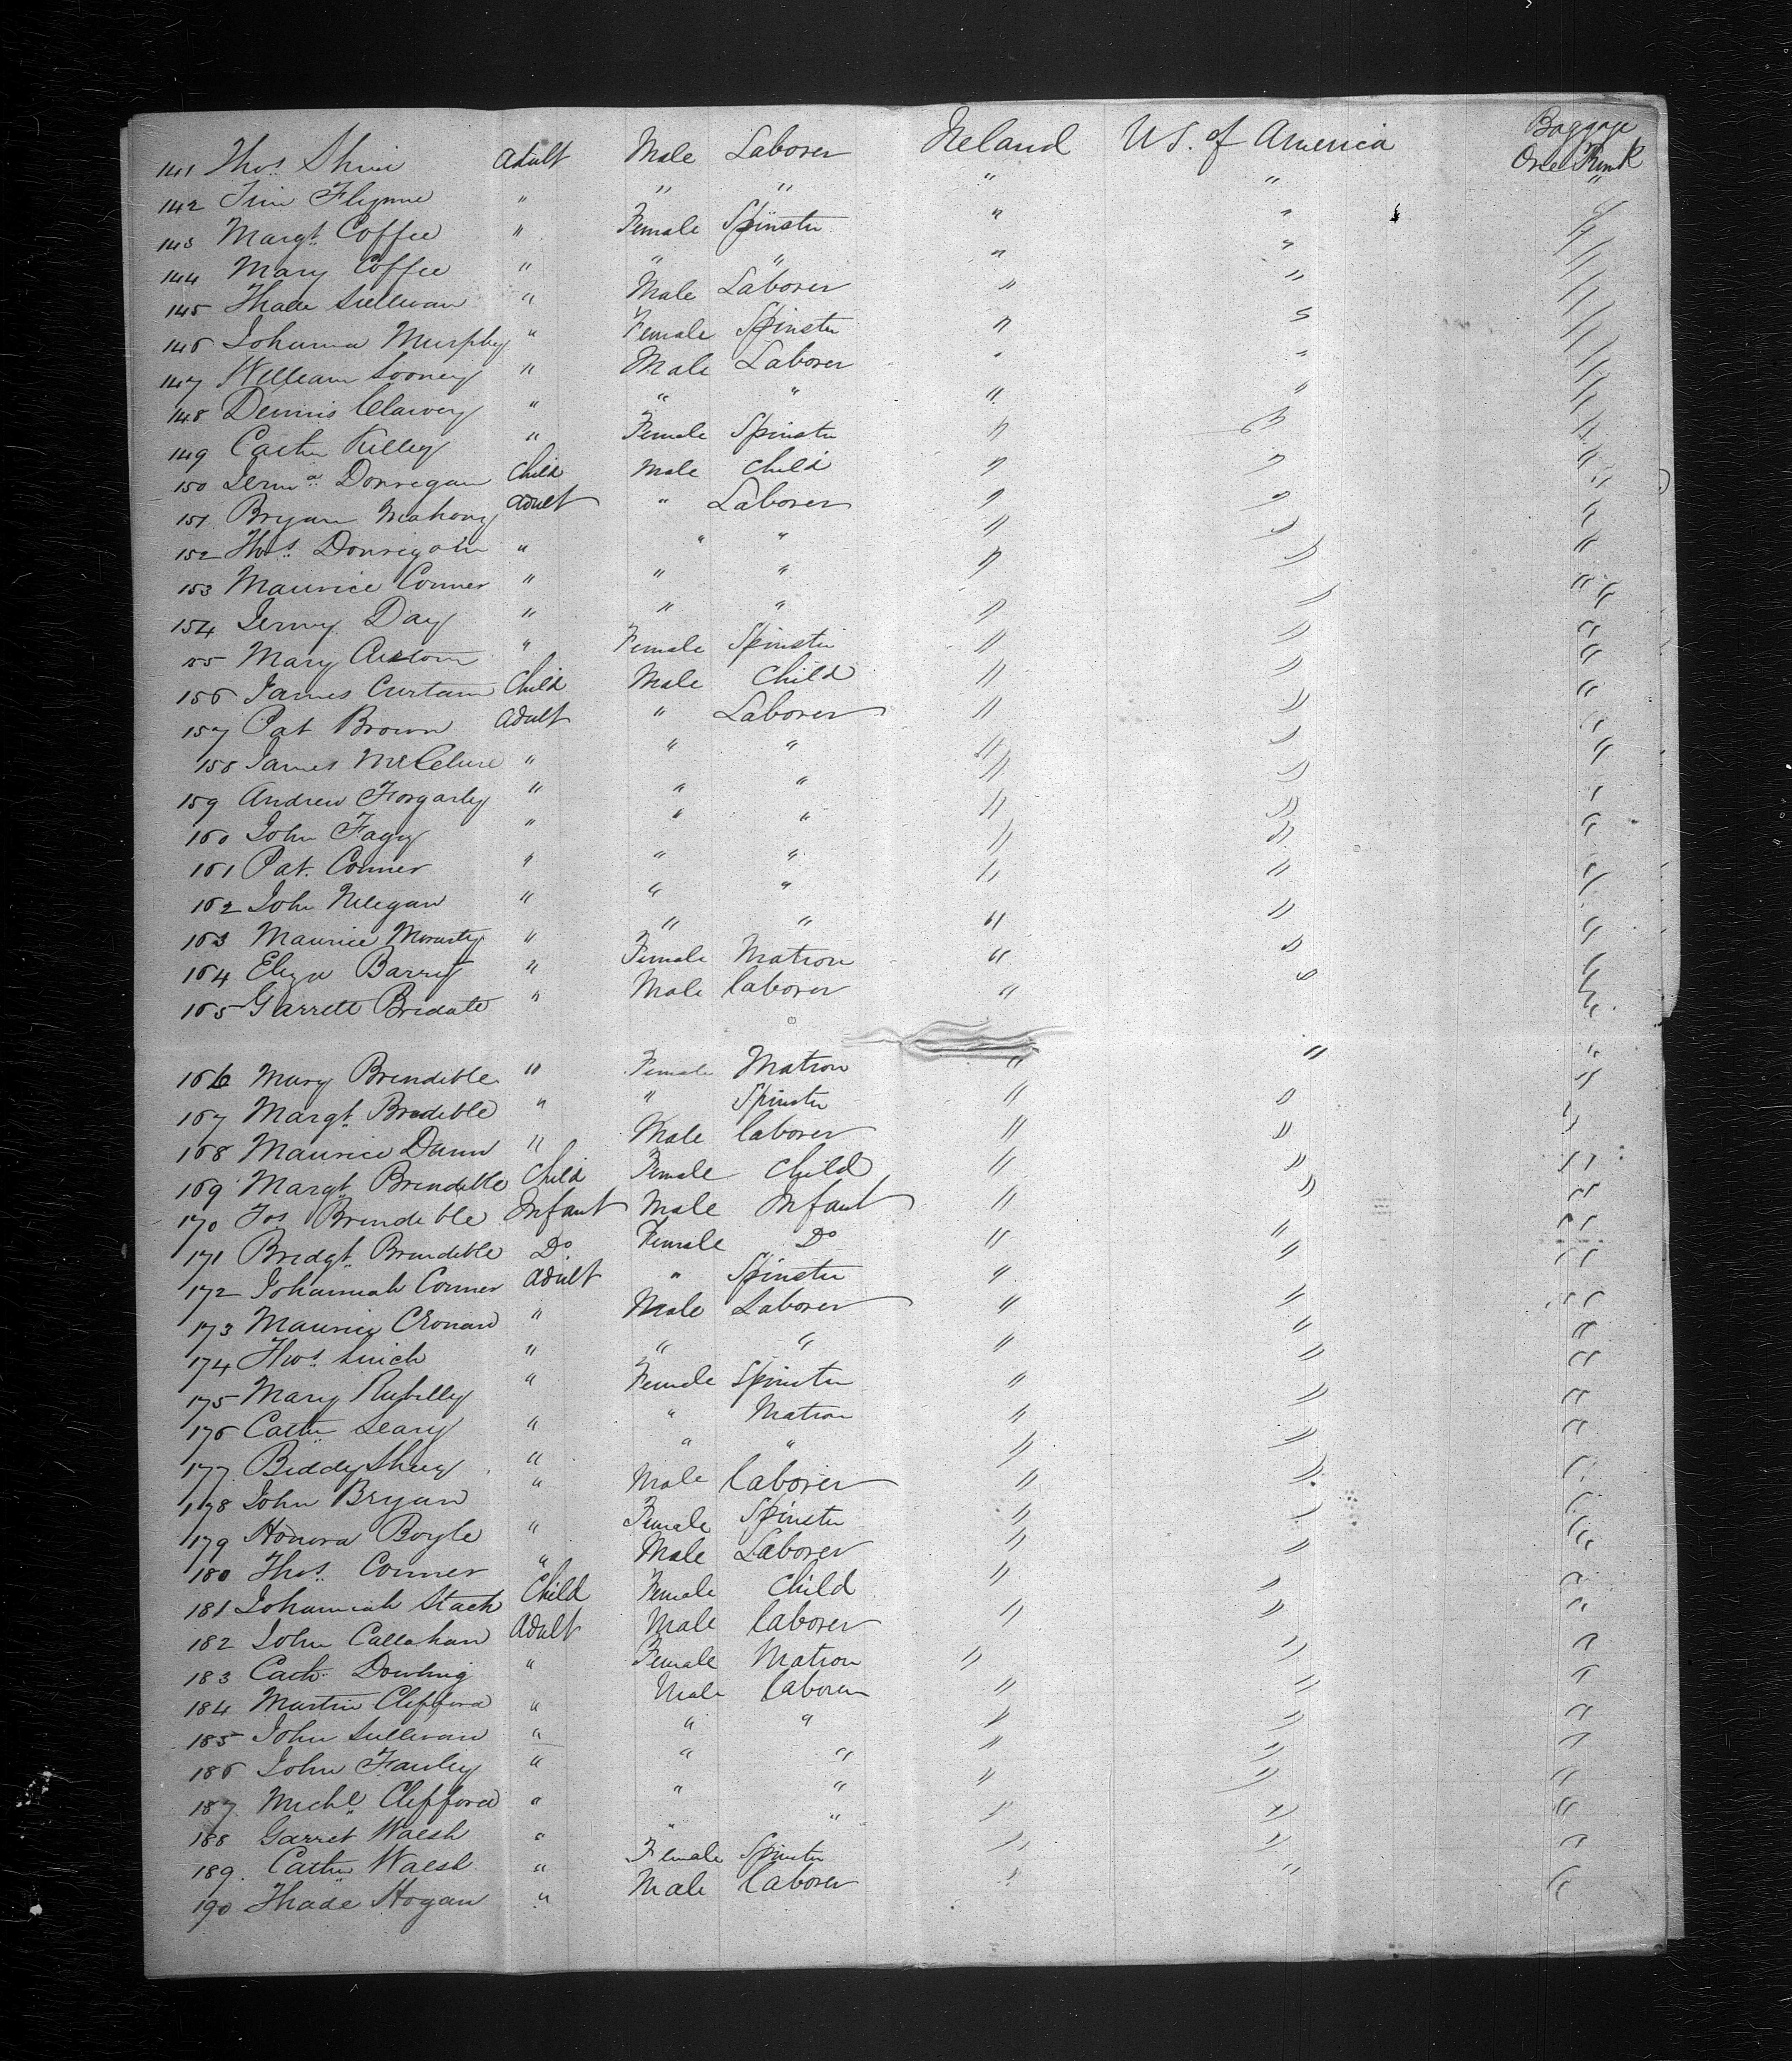 Baggage
141 Thos. Shine Adult Male Laborer Ireland U.S. of America One Trunk
142 Tim Flynne " " " " " "
143 Margt. Coffee " Female Spinster " " "
144 Mary Coffee " " " " " "
145 Thade Sullivan " Male Laborer " " "
146 Johanna Murphy " Female Spinster " " "
147 William Looney " Male Laborer " " "
148 Dennis " " " " " "
149 Cathn Killey " Female Spinster " " "
150 Donnegan Child Male Child " " "
151 Bryan Mahony Adult " Laborer " " "
152 Thos. Donnigan " " " " " "
153 Maurice Conner " " " " " "
154 Jerny Day " " " " " "
155 Mary " Female Spinster " " "
156 James Curtain Child Male Child " " "
157 Pat Brown Adult " Laborer " " "
158 James McClure " " " " " "
159 Andrew Forgarty " " " " " "
160 John Fagy " " " " " "
161 Pat. Conner " " " " " "
162 John Nelegan " " " " " "
163 Maurice Morarty " " " " " "
164 Eliza Barry " Female Matron " " "
165 Garrett " Male Laborer " " "
166 Mary Brendible " Female Matron " " "
167 Margt. Bredible " " Spinster " " "
168 Maurice Dunn " Male Laborer " " "
169 Margt. Brendible Child Female Child " " "
170 Jos Brendible Infant Male Infant " " "
171 Bridgt. Brendible Do Female Do " " "
172 Johannah Conner Adult " Spinster " " "
173 Maurice Cronan " Male Laborer " " "
174 Thos. Linch " " " " " "
175 Mary " Female Spinster " " "
176 Cathn Leary " " Matron " " "
177 Biddy Shey " " " " " "
178 John Bryan " Male Laborer " " "
179 Honora Boyle " Female Spinster " " "
180 Thos. Conner " Male Laborer " " "
181 Johannah Stack Child Female Child " " "
182 John Callahan Adult Male Laborer " " "
183 Cath. Dowling " Female Matron " " "
184 Martin Clifford " Male Laborer " " "
185 John Sullivan " " " " " "
186 John Fauley " " " " " "
187 Michl. Clifford " " " " " "
188 Garret Walsh " " " " " "
189. Cathn Walsh " Female Spinster " " "
190 Thade Hogan " Male Laborer " " "